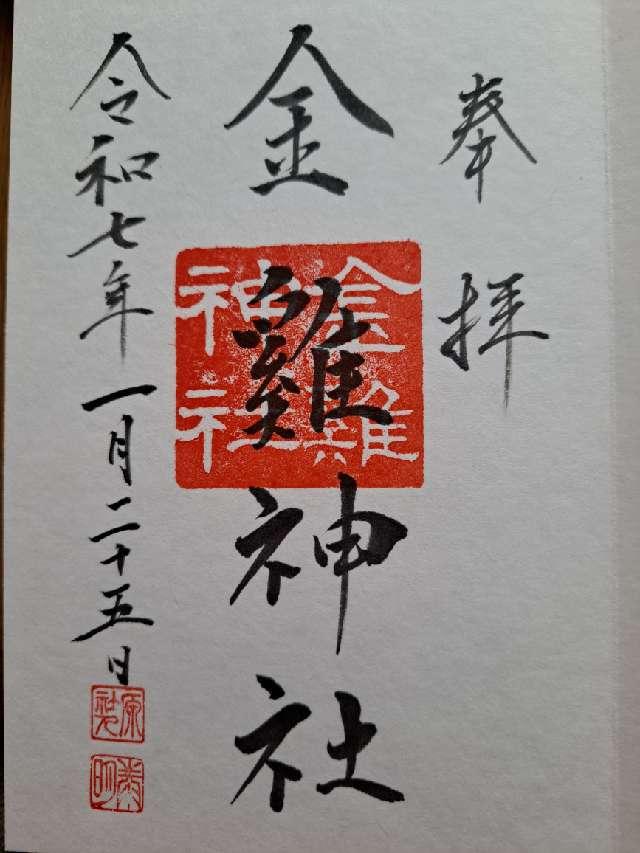 奉拝
金雞神社
金雞神社
令和七年一月二十五日